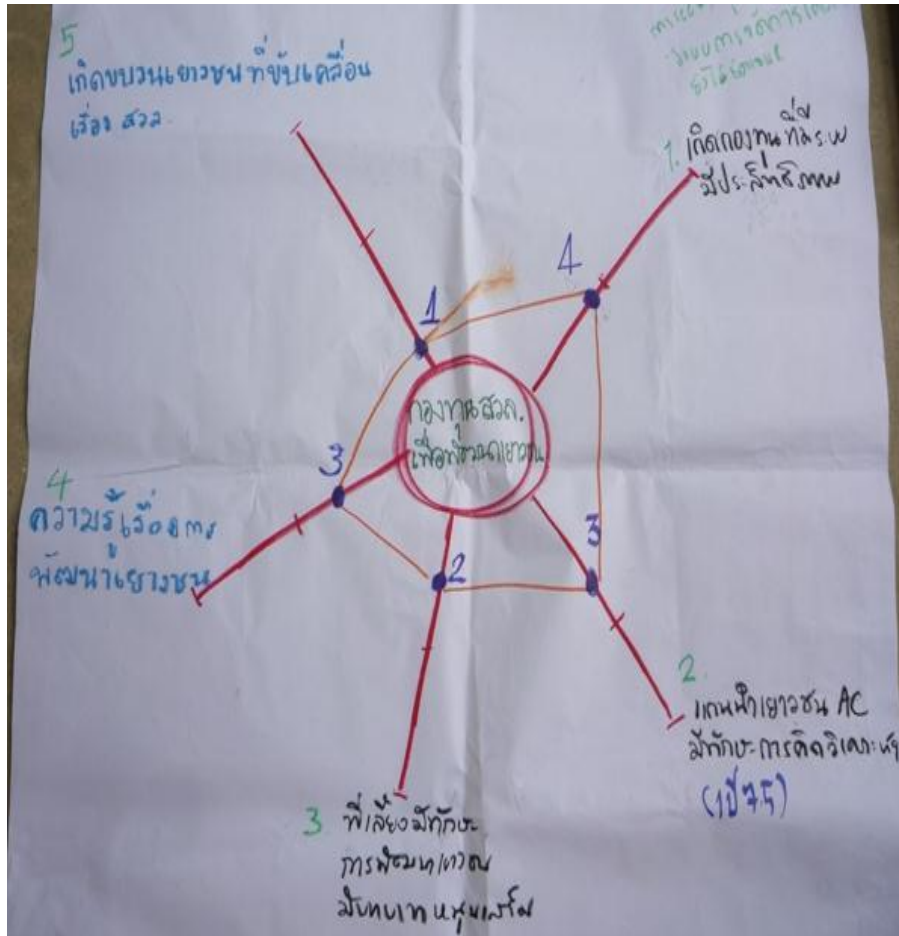 5
เกิดขบวนเยาวชนที่ขับเคลื่อน
เรื่อง สวล.
ระบบการจัดการ
1. เกิดกองทุนที่มีระบบ
มีประสิทธิภาพ
4
1
กองทุนสวล.
เพื่อพัฒนาเยาวชน
3
4
ความรู้เรื่องการ
พัฒนาเยาวชน
2
3
2.
แกนนำเยาวชน AC
มีทักษะการคิดวิเคราะห์
(1ปี 75)
3 พี่เลี้ยงมีทักษะ
การพัฒนาเยาวชน
มีบทบาทหนุนเสริม